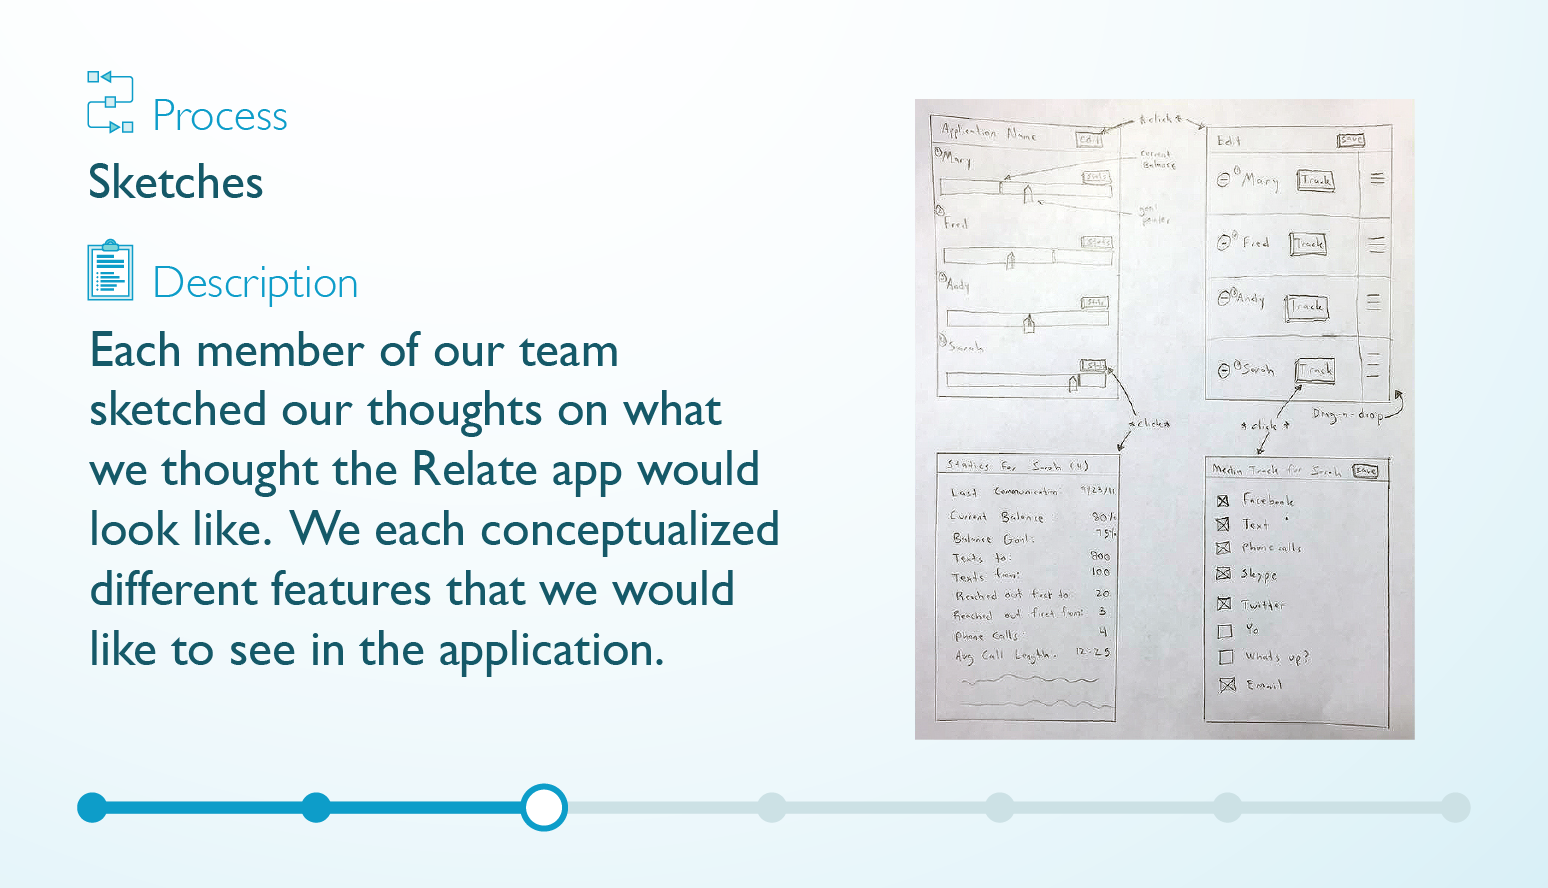 Process
Sketches
Description
Each member of our team
sketched our thoughts on what
we thought the Relate app would
look like. We each conceptualized
different features that we would
like to see in the application.
Application Name
Edit
*click*
current
Balance
Mary
Stats
goal
pointer
Fred
Stats
Andy
Stats
Sarah
Stats
*click*
Edit
Save
Mary Track
Fred Track
Andy Track
Sarah Track
Drag-n-drop
*click*
for Sarah (4)
Last Communication:
Current Balance 80%
Balance Goal: 75%
Texts to: 800
Texts from: 100
Reached out first to 20
Reached out first from: 3
Phone Calls: 4
Avg Call Length: 12:25
Media Track for Sarah Save
Facebook
Text
Phone calls
Skype
Twitter
Yo
Whats up?
Email